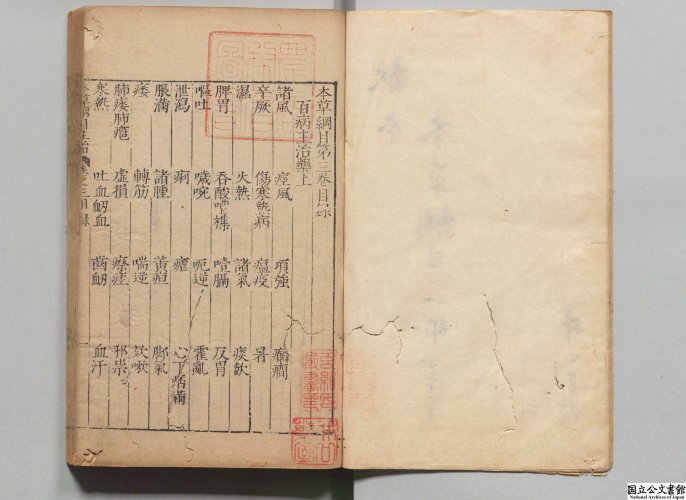 本草綱目第三卷目錄
百病主治藥上
諸風 痙風 項強 癲癇
卒厥 傷寒熱病 瘟疫 暑
濕 火熱 諸氣 痰飲
脾胃 吞酸嘈雜 噎膈 反胃
嘔吐 噦啘 呃逆 霍亂
泄瀉 痢 瘧 心下痞滿
脹滿 諸腫 黃疸 腳氣
痿 轉筋 喘逆 咳嗽
肺痿肺癰 虛損 瘵疰 邪祟
寒熱 吐血衄血 齒衄 血汗
国立公文書館
National Archives of Japan